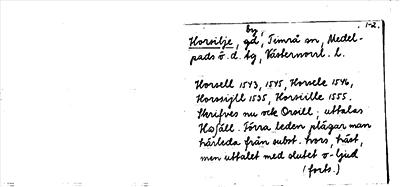 1-2.
by,
Horsilje, gd, Timrå sn, Medel-
pads ö. d. tg, Västernorrl. l.
Horsell 1543, 1545, Horsele 1546,
Horssijll 1535, Horsiille 1555.
Skrifves nu ock Orsill; uttalas
Förra leden plägar man
härleda från subst. hors, häst,
men uttalet med slutet o-ljud
(forts.)